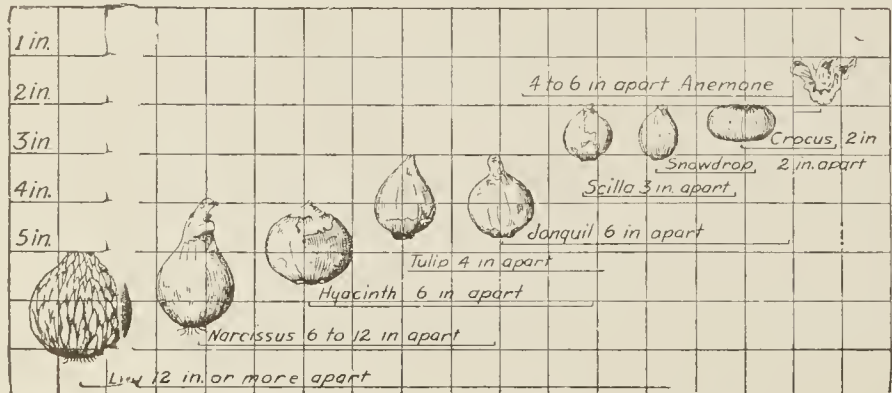 1 in.
2 in.
3 in.
4 in.
5 in.
4 to 6 in apart Anemone
Crocus, 2 in
Snowdrop 2 in. apart
Scilla 3 in. apart
Jonquil 6 in apart
Tulip 4 in apart
Hyacinth 6 in apart
Narcissus 6 to 12 in apart
Lily 12 in. or more apart